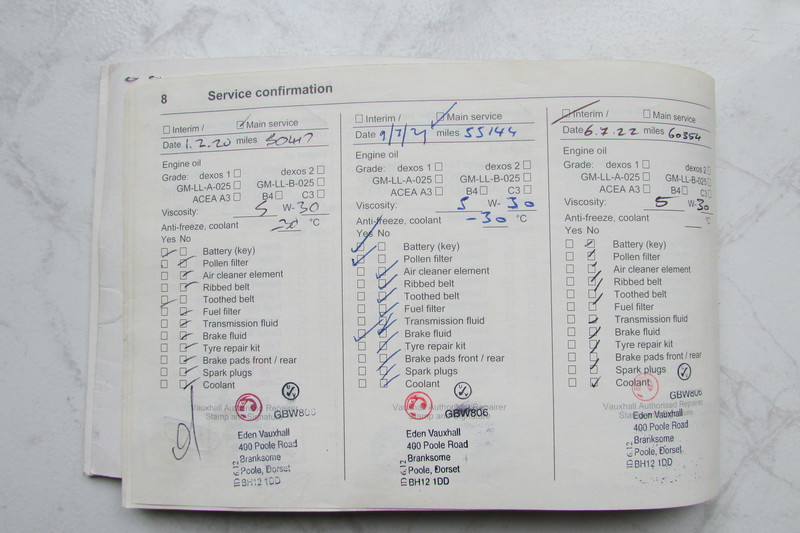 8 Service confirmation
Interim / Main service
Date 1.2.20 miles
Engine oil
Grade: dexos 1 dexos 2
GM-LL-A-025 GM-LL-B-025
ACEA A3 B4 C3
Viscosity: 5 W-30
Anti-freeze, coolant °C
Yes No
Battery (key)
Pollen filter
Air cleaner element
Ribbed belt
Toothed belt
Fuel filter
Transmission fluid
Brake fluid
Tyre repair kit
Brake pads front / rear
Spark plugs
Coolant
Vauxhall Authorised Repairer
Stamp and Signature
GBW806
Eden Vauxhall
400 Poole Road
Branksome
Poole, Dorset
BH12 1DD
ID 6.12
Interim / Main service
Date 9/7/21 miles 55144
Engine oil
Grade: dexos 1 dexos 2
GM-LL-A-025 GM-LL-B-025
ACEA A3 B4 C3
Viscosity: 5 W-30
Anti-freeze, coolant -30 °C
Yes No
Battery (key)
Pollen filter
Air cleaner element
Ribbed belt
Toothed belt
Fuel filter
Transmission fluid
Brake fluid
Tyre repair kit
Brake pads front / rear
Spark plugs
Coolant
Vauxhall Authorised Repairer
GBW806
Eden Vauxhall
400 Poole Road
Branksome
Poole, Dorset
BH12 1DD
ID 6.12
Interim / Main service
Date 6.7.22 miles 60354
Engine oil
Grade: dexos 1 dexos 2
GM-LL-A-025 GM-LL-B-025
ACEA A3 B4 C3
Viscosity: 5 W-30
Anti-freeze, coolant °C
Yes No
Battery (key)
Pollen filter
Air cleaner element
Ribbed belt
Toothed belt
Fuel filter
Transmission fluid
Brake fluid
Tyre repair kit
Brake pads front / rear
Spark plugs
Coolant
Vauxhall Authorised Repairer
GBW806
Eden Vauxhall
400 Poole Road
Branksome
Poole, Dorset
BH12 1DD
ID 6.12